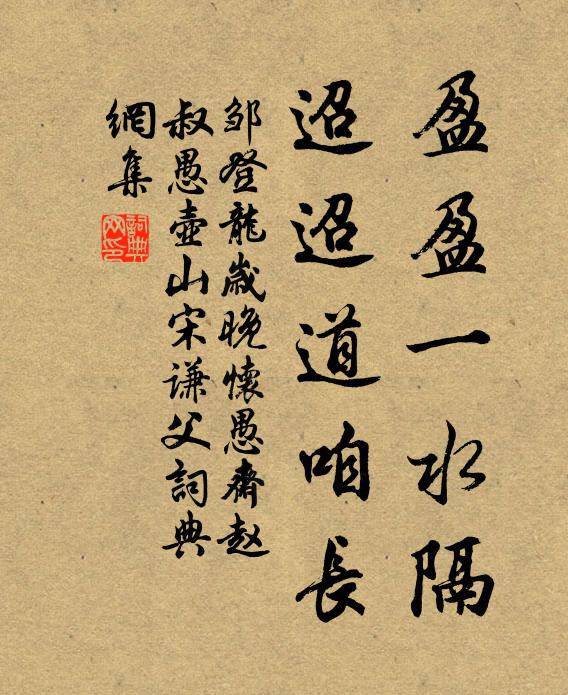 盈盈一水隔
迢迢道咱長
邹登龍歲晚懷愚齋赵
叔愚壶山宋谦父詞典
網集
詞典
网印